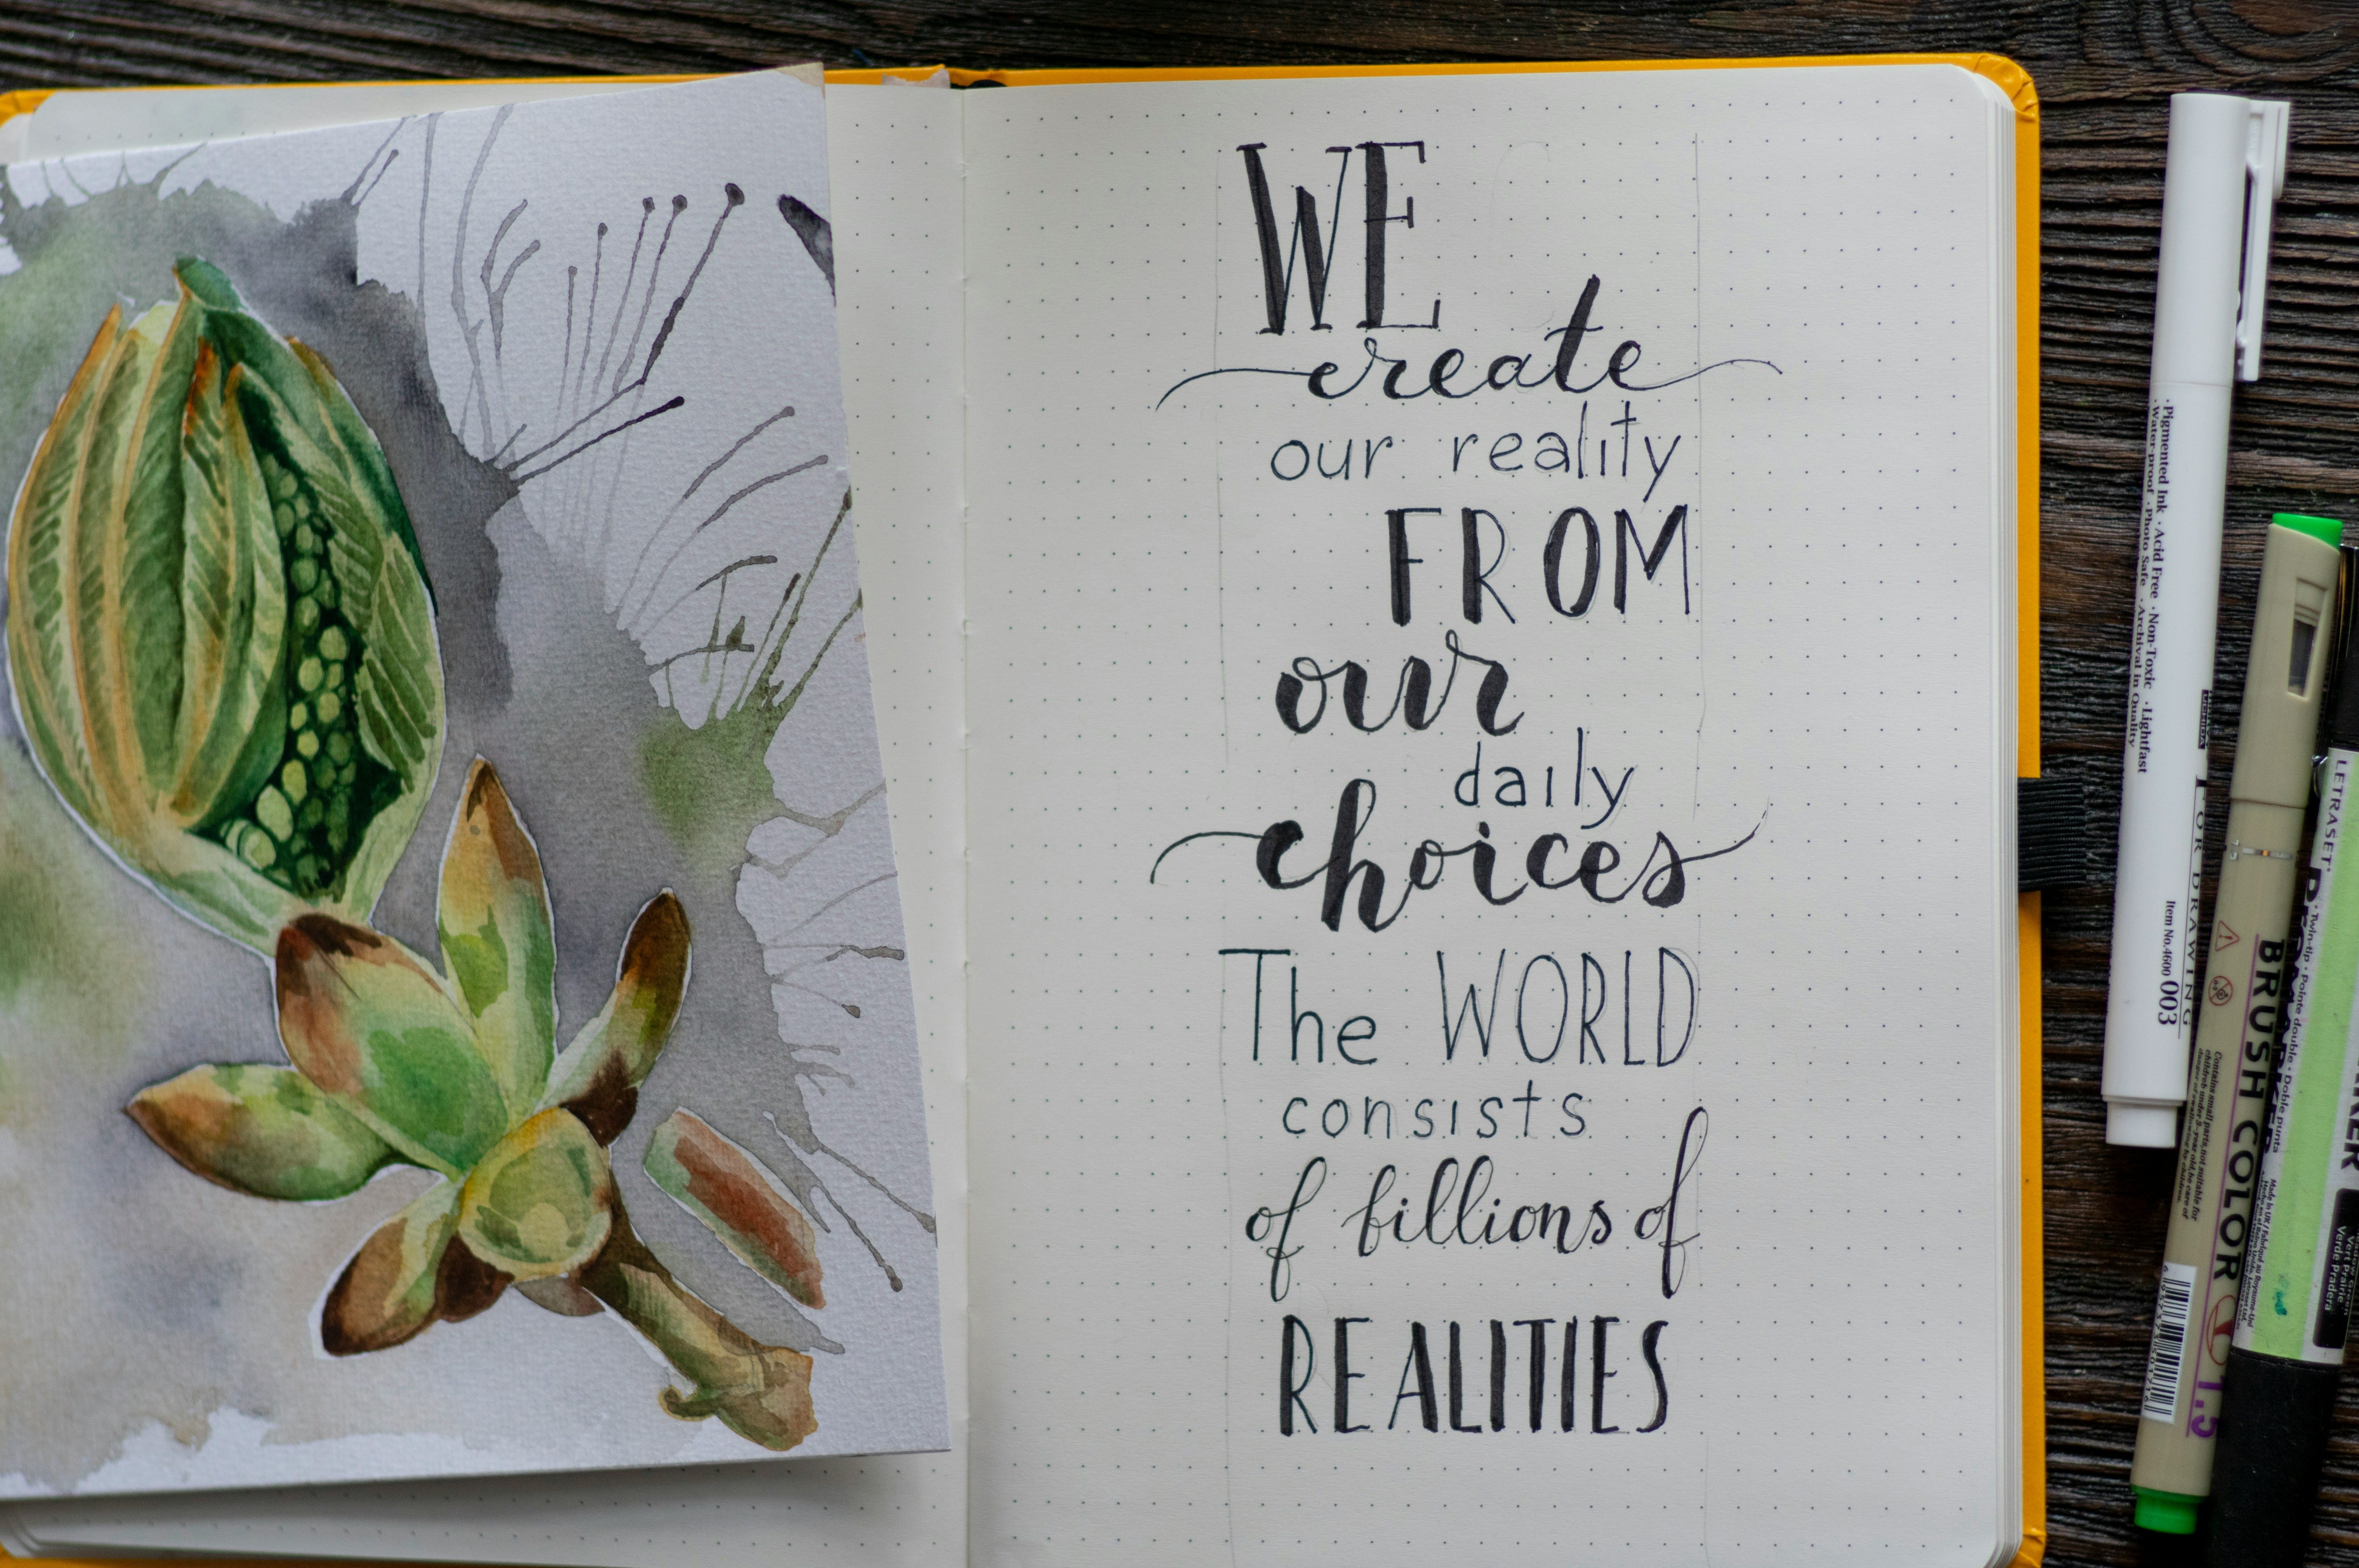 WE
create
our reality
FROM
our
daily
choices
The WORLD
consists
of billions of
REALITIES
· Pigmented Ink · Acid Free · Non-Toxic · Lightfast
· Water-proof · Photo Safe · Archival in Quality
FOR DRAWING
Item No.4600 003
BRUSH COLOR
1.5
LETRASET
Twin-tip · Pointe double · Doble punta
Made in UK/Fabriqué au Royaume-Uni
Vert Prairie
Verde Pradera